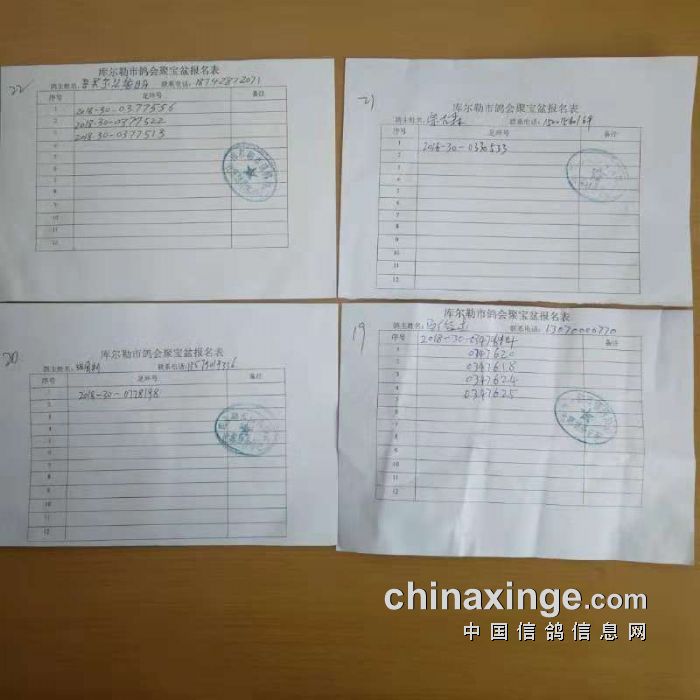 22
库尔勒市鸽会聚宝盆报名表
鸽主姓名: 联系电话: 18742872071
序号 足环号 备注
1 2018-30-0377556
2 2018-30-0377522
3 2018-30-0377513
4
5
6
7
8
9
10
11
12
21
库尔勒市鸽会聚宝盆报名表
鸽主姓名: 联系电话:
序号 足环号 备注
1 2018-30-0330533
2
3
4
5
6
7
8
9
10
11
12
20
库尔勒市鸽会聚宝盆报名表
鸽主姓名: 联系电话:
序号 足环号 备注
1 2018-30-0778198
2
3
4
5
6
7
8
9
10
11
12
19
库尔勒市鸽会聚宝盆报名表
鸽主姓名: 联系电话: 13070000770
序号 足环号 备注
1 2018-30-
2 0347620
3 0347618
4 0347624
5 0347625
6
7
8
9
10
11
12
chinaxinge.com
中国信鸽信息网